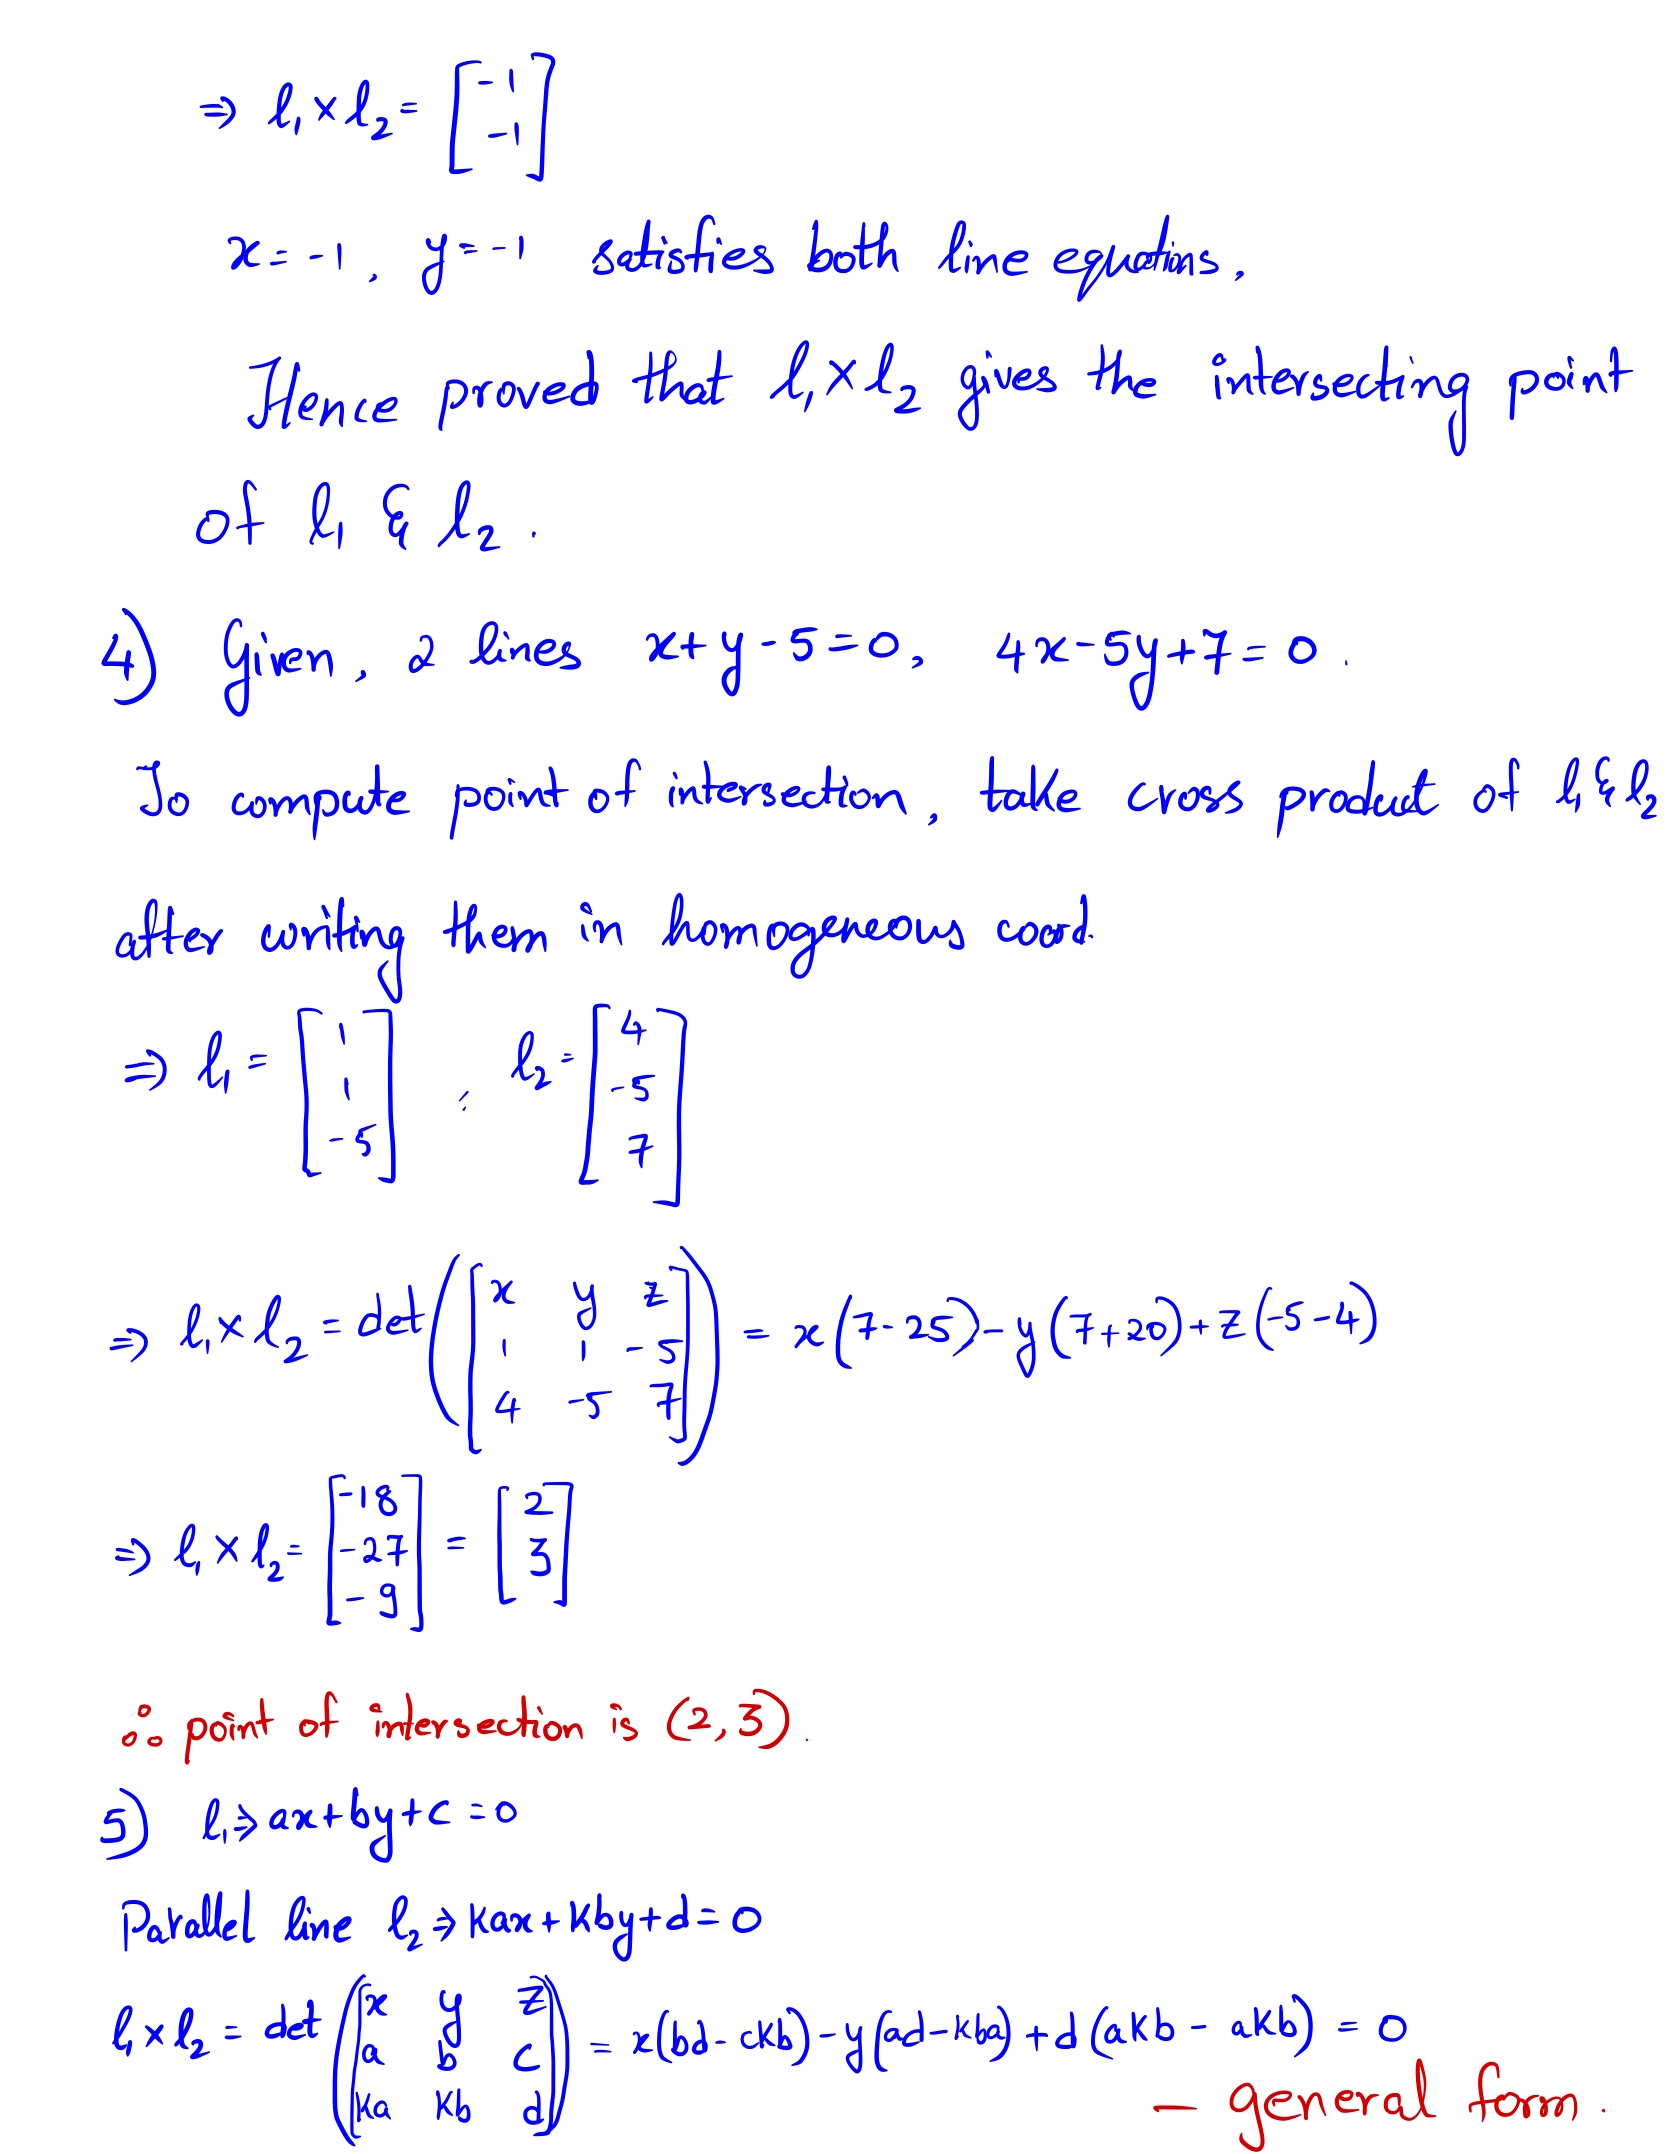 ⇒ l₁ × l₂ = [-1 -1]
x = -1, y = -1 satisfies both line equations.
Hence proved that l₁ × l₂ gives the intersecting point
of l₁ & l₂.
4) Given, 2 lines x+y-5=0, 4x-5y+7=0.
To compute point of intersection, take cross product of l₁ & l₂
after writing them in homogeneous coord.
⇒ l₁ = [1 1 -5] , l₂ = [4 -5 7]
⇒ l₁ × l₂ = det([x y z; 1 1 -5; 4 -5 7]) = x(7-25) - y(7+20) + z(-5-4)
⇒ l₁ × l₂ = [-18 -27 -9] = [2 3]
∴ point of intersection is (2,3).
5) l₁ ⇒ ax+by+c=0
Parallel line l₂ ⇒ kax+kby+d=0
l₁ × l₂ = det([x y z; a b c; ka kb d]) = x(bd-ckb) - y(ad-kba) + d(akb - akb) = 0
— general form.